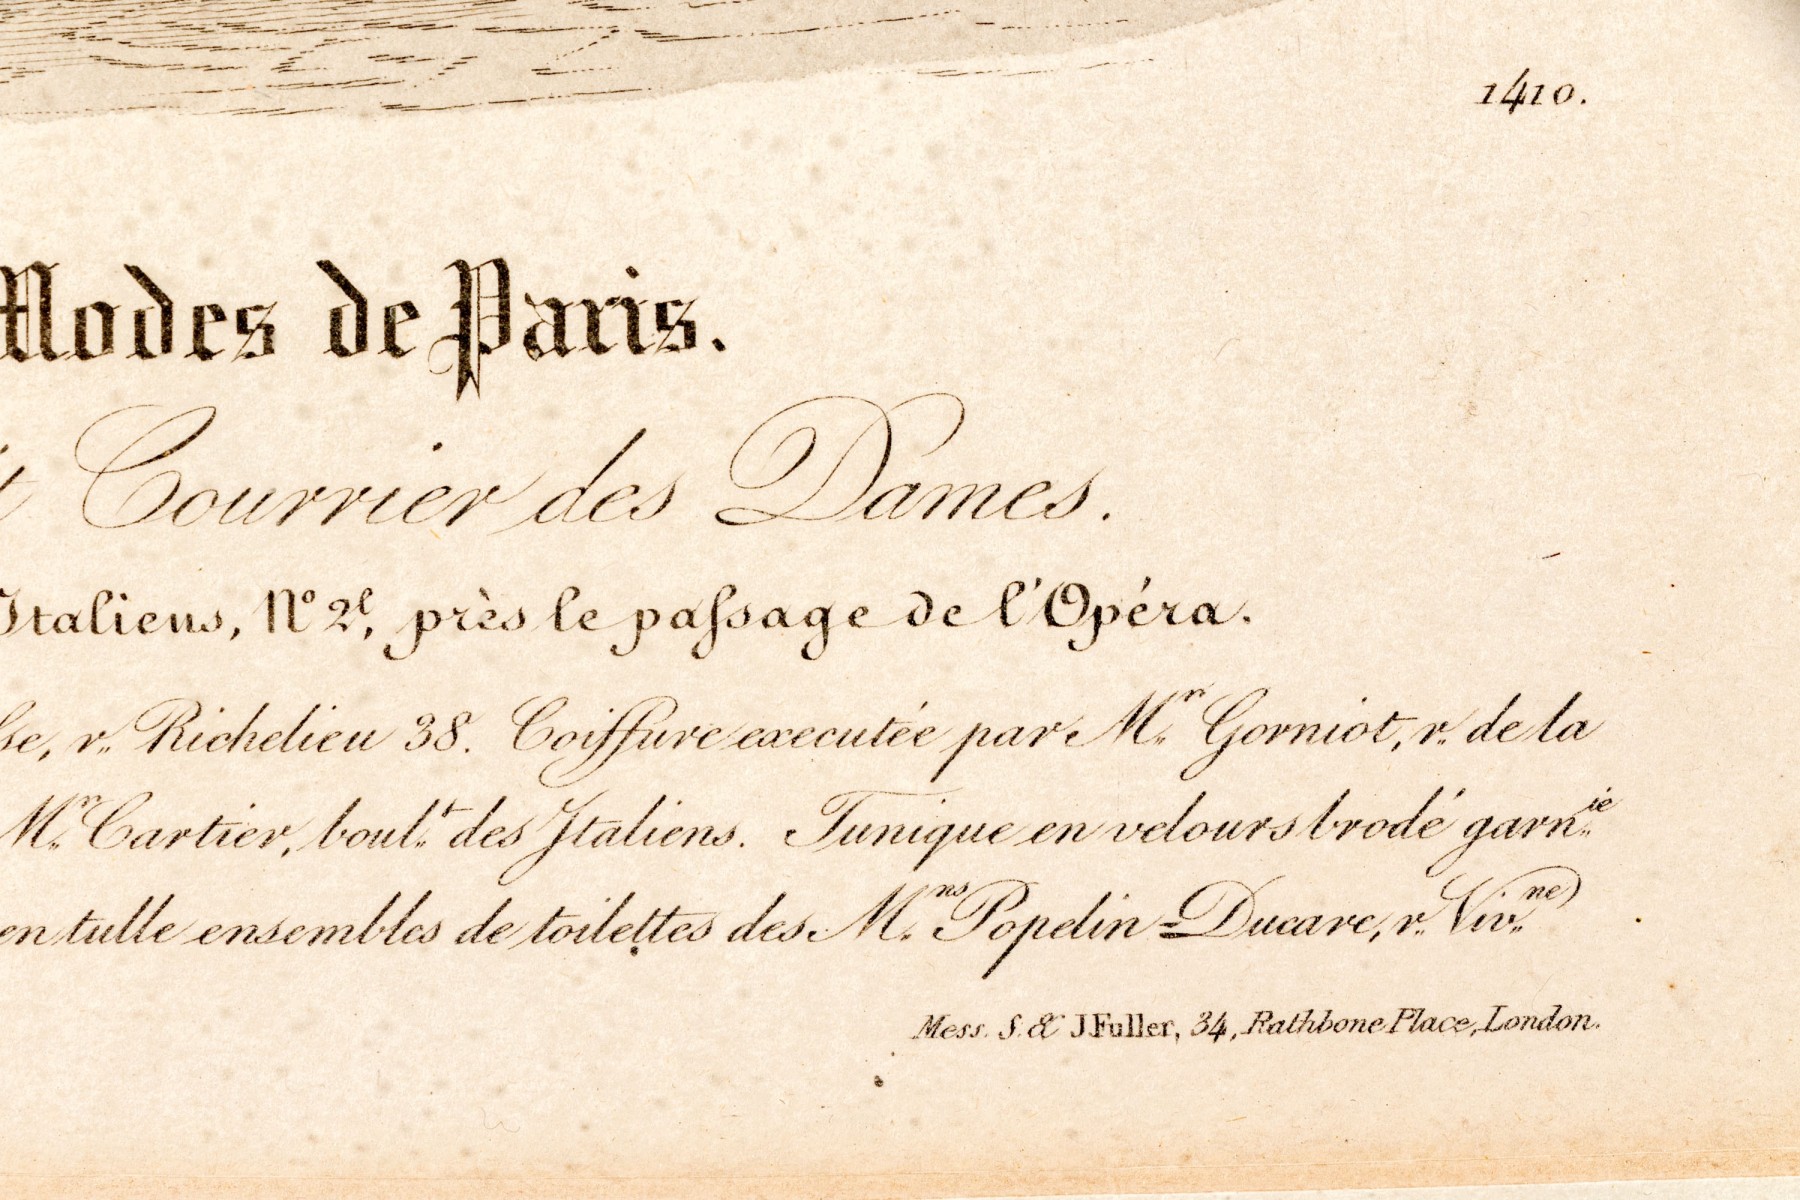 1410.
Modes de Paris.
t Courrier des Dames.
Italiens, N.º 2ᵉ, près le paſsage de l'Opéra.
se, r. Richelieu 38. Coiffure executée par M.ʳ Gorniot, r. de la
M.ʳ Cartier, boul.ᵗ des Italiens. Tunique en velours brodé garn.ⁱᵉ
en tulle ensembles de toilettes des M.ⁿˢ Popelin=Ducare, r. Viv.ⁿᵉ
Mess. S. & J Fuller, 34, Rathbone Place, London.